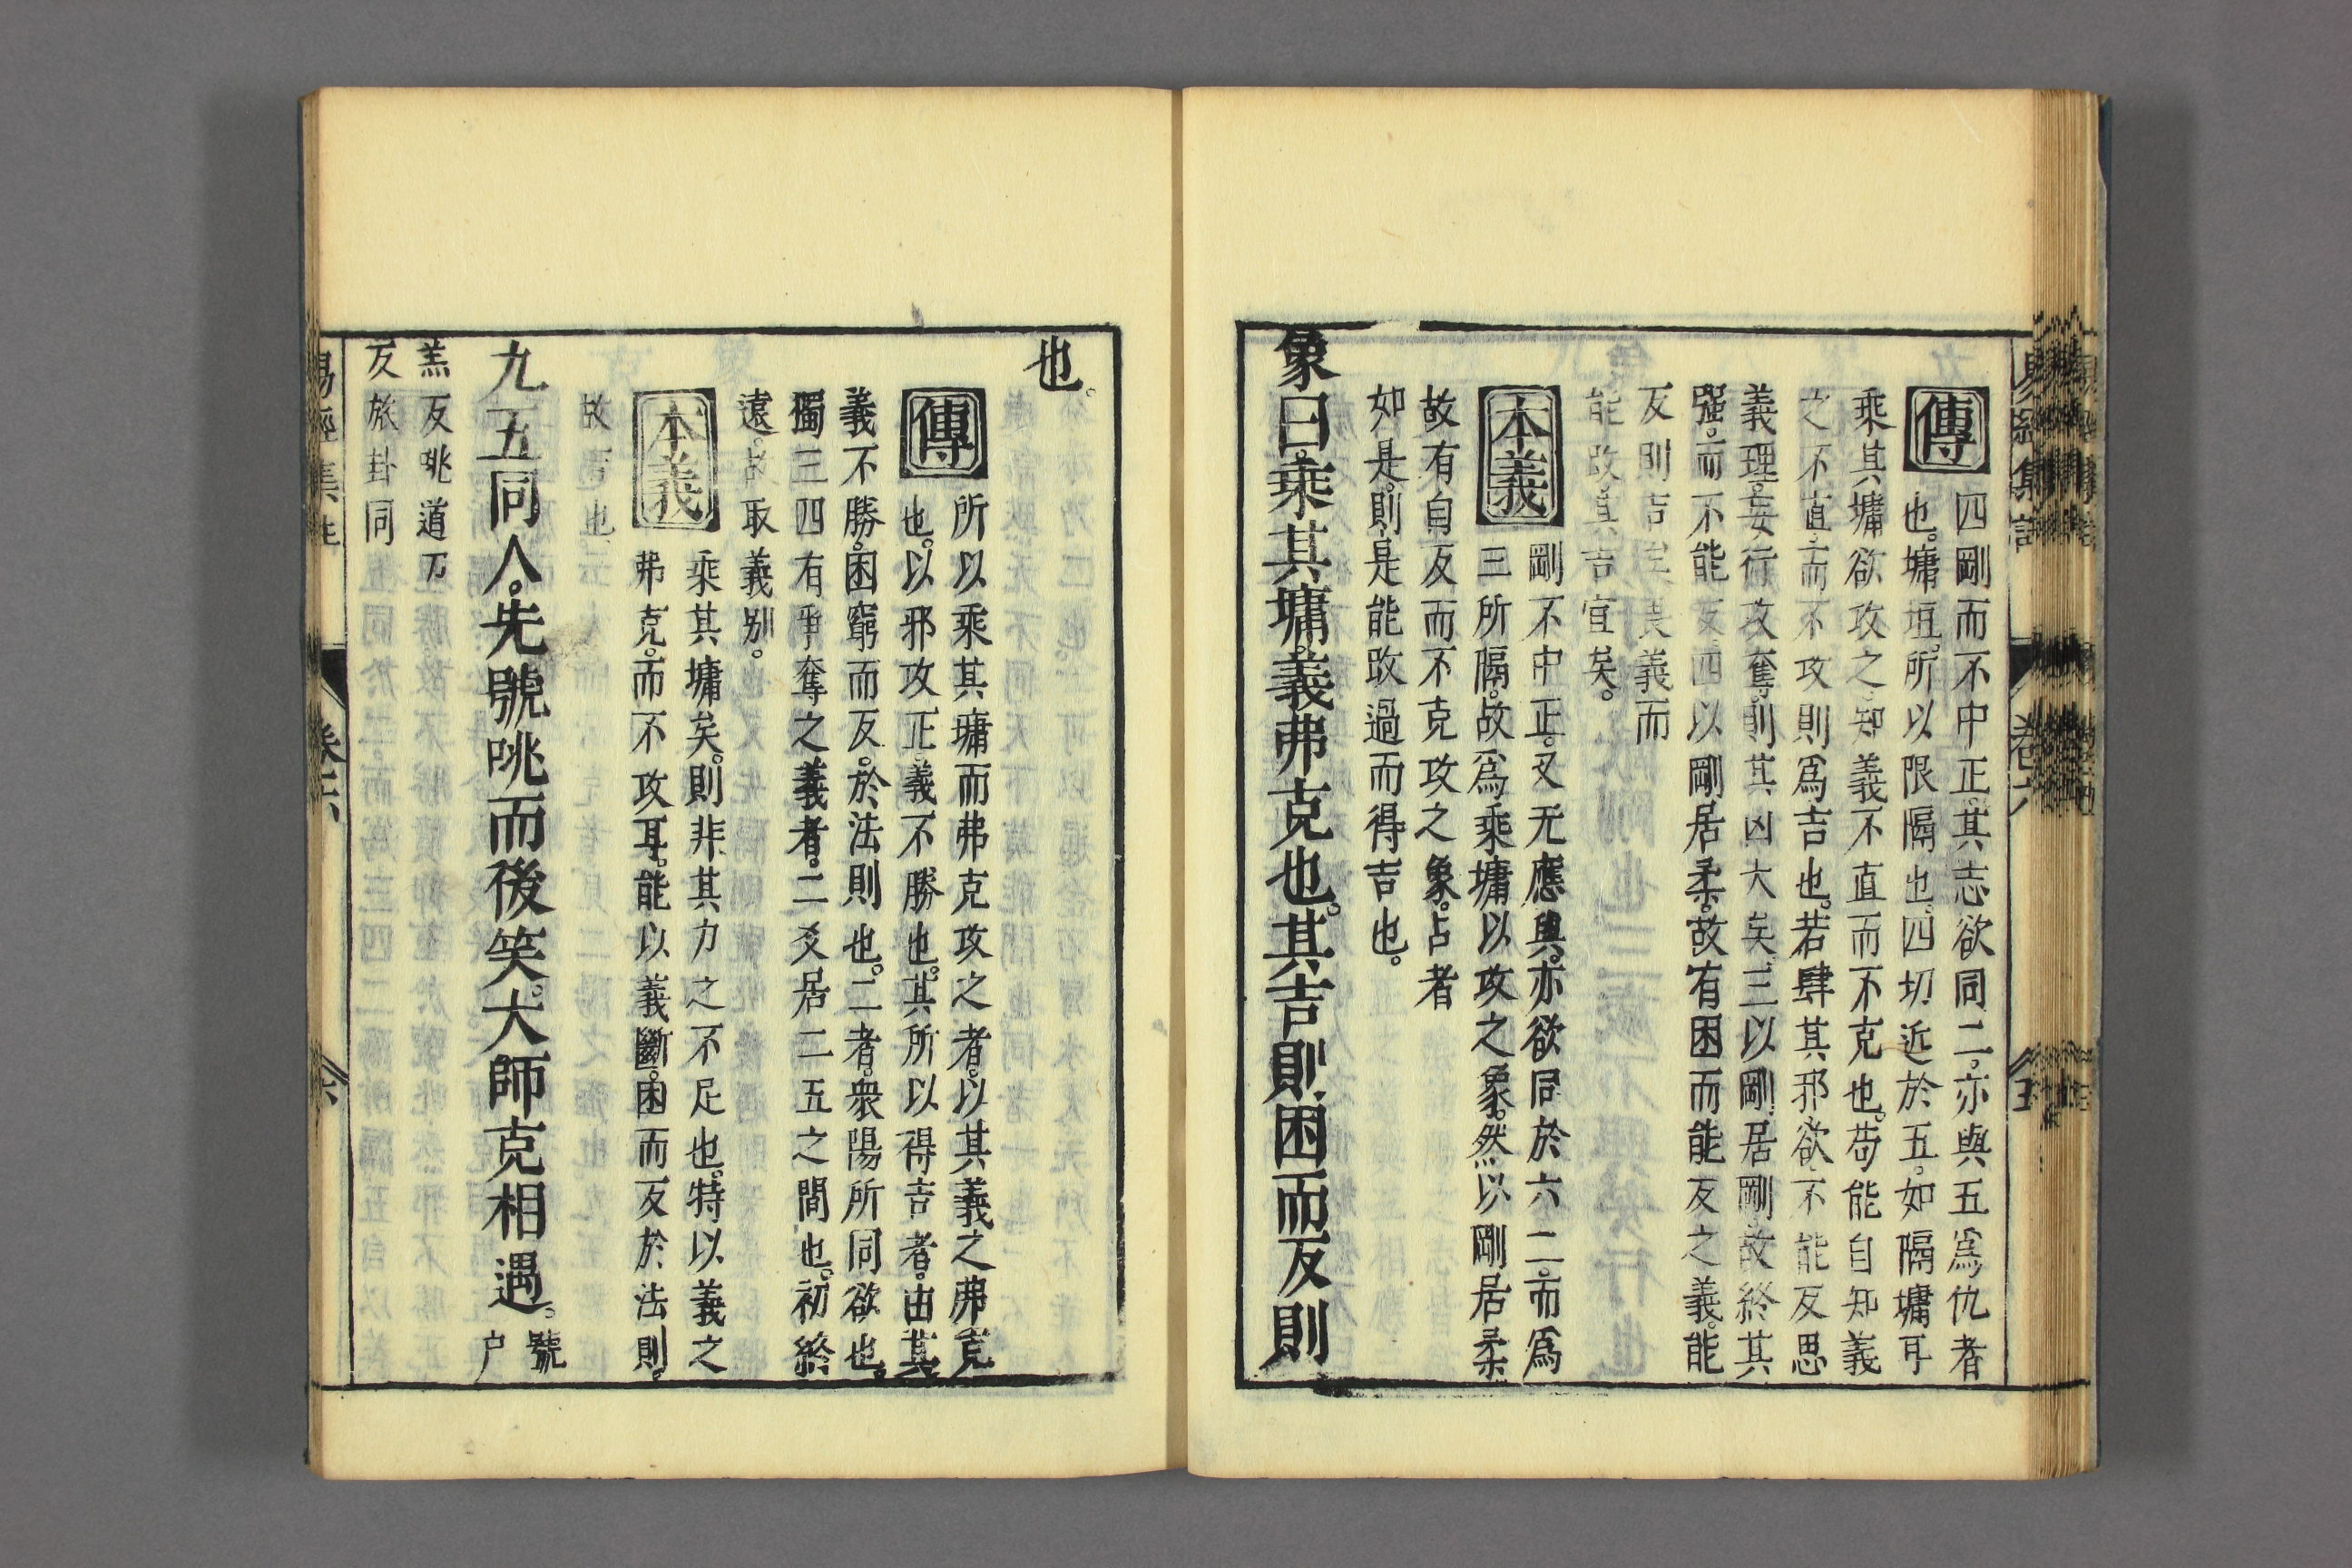 傳
四剛而不中正。其志欲同二。亦與五爲仇者
也。墉垣。所以限隔也。四切近於五。如隔墉耳
乘其墉欲攻之。知義不直而不克也。苟能自知義
之不直。而不攻則爲吉也。若肆其邪欲。不能反思
義理。妄行攻奪。則其凶大矣。三以剛居剛故終其
强。而不能反。四以剛居柔。故有困而能反之義。能
反則吉矣畏義而
能改。其吉宜矣。
本義
剛不中正。又无應與。亦欲同於六二。而爲
三所隔。故爲乘墉以攻之象。然以剛居柔
故有自反而不克攻之象。占者
如是。則是能改過而得吉也。
象曰。乘其墉。義弗克也。其吉則困而反則
也。
傳
所以乘其墉而弗克攻之者。以其義之弗克
也。以邪攻正。義不勝也。其所以得吉者。由其
義不勝。困窮而反。於法則也。二者。衆陽所同欲也。
獨三四有爭奪之義者。二爻居二五之間也。初終
遠。故取義别。
本義
乘其墉矣。則非其力之不足也。特以義之
弗克。而不攻耳。能以義斷。困而反於法則。
故吉也
九五同人。先號咷而後笑。大師克相遇。號
戶
羔反咷道刀
反旅卦同
易經集註 卷六 五
易經集註 卷六 六